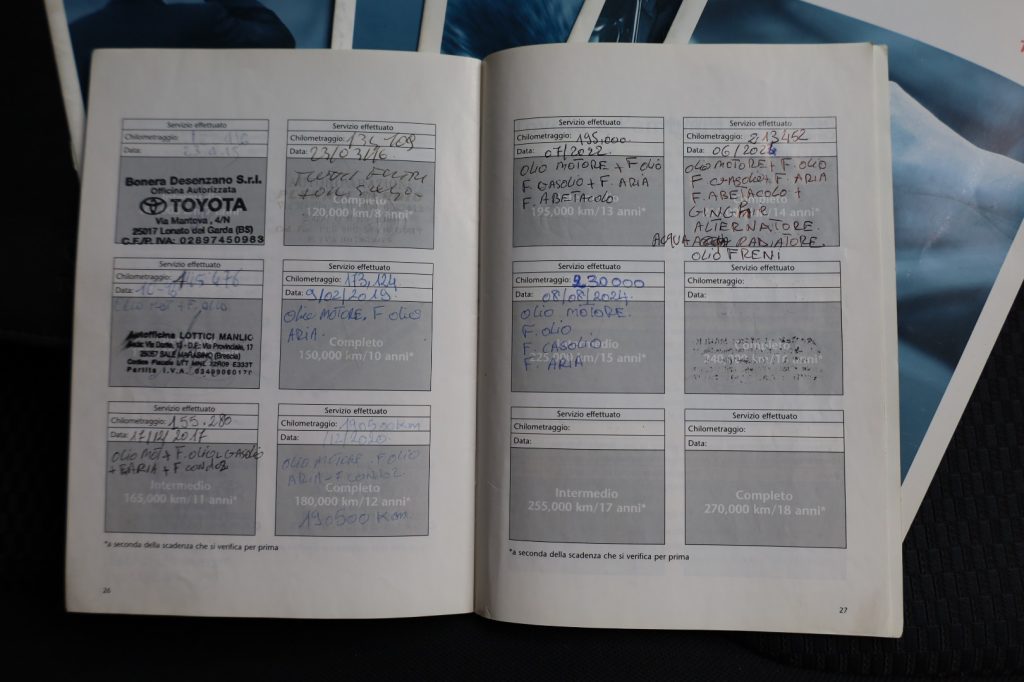 Servizio effettuato
Chilometraggio:
Data:
Bonera Desenzano S.r.l.
Officina Autorizzata
TOYOTA
Via Mantova, 4/N
25017 Lonato del Garda (BS)
C.F./P. IVA: 02897450983
Servizio effettuato
Chilometraggio:
Data: 23/03/16
Completo
120,000 km/8 anni*
Servizio effettuato
Chilometraggio: 145.676
Data:
OLIO MOT + F. OLIO
Autofficina LOTTICI MANLIO
25057 SALE MARASINO (Brescia)
Servizio effettuato
Chilometraggio: 173.124
Data: 9/02/2019
OLIO MOTORE. F OLIO
ARIA.
Completo
150,000 km/10 anni*
Servizio effettuato
Chilometraggio: 155.280
Data:
OLIO MOT + F. OLIO + GASOLIO
+ F ARIA + F
Intermedio
165,000 km/11 anni*
Servizio effettuato
Chilometraggio: 190500 km
Data: /12/2020
OLIO MOTORE. F OLIO
Completo
180,000 km/12 anni*
190500 Km.
*a seconda della scadenza che si verifica per prima
26
Servizio effettuato
Chilometraggio: 195.000
Data: 07/2022
OLIO MOTORE + F OLIO
F GASOLIO + F. ARIA
F. ABETACOLO
195,000 km/13 anni*
Servizio effettuato
Chilometraggio: 213452
Data:
OLIO MOTORE + F. OLIO
F GASOLIO + F. ARIA
F. ABETACOLO +
ALTERNATORE
ACQUA RADIATORE
OLIO FRENI
Servizio effettuato
Chilometraggio: 230000
Data: 08/08/2024
OLIO MOTORE.
F. OLIO
F. GASOLIO
F. ARIA
225,000 km/15 anni*
Servizio effettuato
Chilometraggio:
Data:
Completo
Servizio effettuato
Chilometraggio:
Data:
Intermedio
255,000 km/17 anni*
Servizio effettuato
Chilometraggio:
Data:
Completo
270,000 km/18 anni*
*a seconda della scadenza che si verifica per prima
27